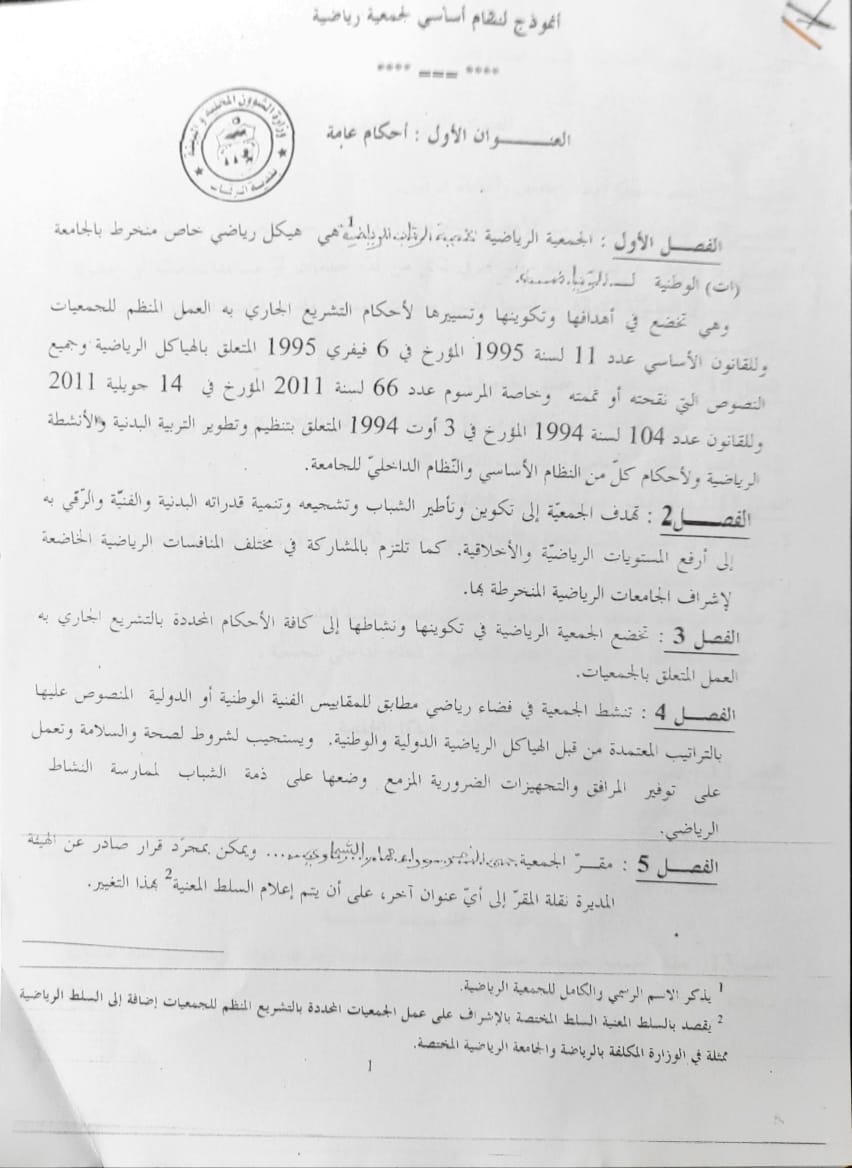 أنموذج لنظام أساسي لجمعية رياضية
**** === ****
العنـــــوان الأول : أحكام عامة
وزارة الشؤون المحلية و البيئة
الفصــل الأول : الجمعية الرياضية للرياضة1 هي هيكل رياضي خاص منخرط بالجامعة
(ات) الوطنية لـ
وهي تخضع في أهدافها وتكوينها وتسييرها لأحكام التشريع الجاري به العمل المنظم للجمعيات
وللقانون الأساسي عدد 11 لسنة 1995 المؤرخ في 6 فيفري 1995 المتعلق بالهياكل الرياضية وجميع
النصوص التي نقحته أو تممته وخاصة المرسوم عدد 66 لسنة 2011 المؤرخ في 14 جويلية 2011
وللقانون عدد 104 لسنة 1994 المؤرخ في 3 أوت 1994 المتعلق بتنظيم وتطوير التربية البدنية والأنشطة
الرياضية ولأحكام كلّ من النظام الأساسي والنّظام الداخليّ للجامعة.
الفصــــل2 : تهدف الجمعيّة إلى تكوين وتأطير الشباب وتشجيعه وتنمية قدراته البدنية والفنيّة والرّقي به
إلى أرفع المستويات الرياضيّة والأخلاقية. كما تلتزم بالمشاركة في مختلف المنافسات الرياضية الخاضعة
لإشراف الجامعات الرياضية المنخرطة بها.
الفصل 3 : تخضع الجمعية الرياضية في تكوينها ونشاطها إلى كافة الأحكام المحددة بالتشريع الجاري به
العمل المتعلق بالجمعيات.
الفصـــل 4 : تنشط الجمعية في فضاء رياضي مطابق للمقاييس الفنية الوطنية أو الدولية المنصوص عليها
بالتراتيب المعتمدة من قبل الهياكل الرياضية الدولية والوطنية. ويستجيب لشروط لصحة والسلامة وتعمل
على توفير المرافق والتجهيزات الضرورية المزمع وضعها على ذمة الشباب لممارسة النشاط
الرياضي.
الفصـــل 5 : مقـرّ الجمعية ... ويمكن بمجرّد قرار صادر عن الهيئة
المديرة نقلة المقرّ إلى أيّ عنوان آخر، على أن يتم إعلام السلط المعنية2 بهذا التغيير.
1 يذكر الاسم الرسمي والكامل للجمعية الرياضية.
2 يقصد بالسلط المعنية السلط المختصة بالإشراف على عمل الجمعيات المحددة بالتشريع المنظم للجمعيات إضافة إلى السلط الرياضية
ممثلة في الوزارة المكلفة بالرياضة والجامعة الرياضية المختصة.
1